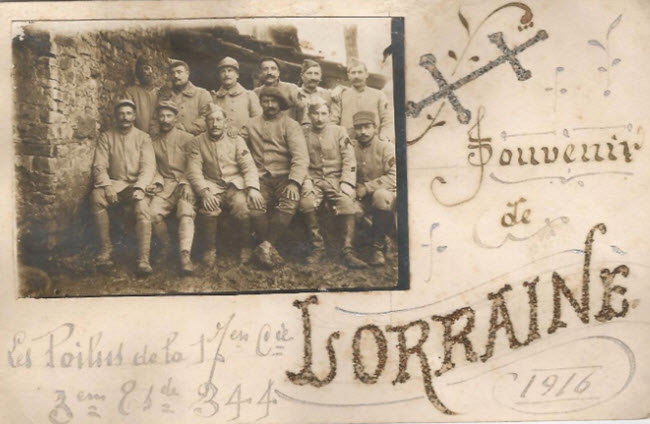 Souvenir
de
LORRAINE
1916
Les Poilus de la 17em Cie
3em Es de 344